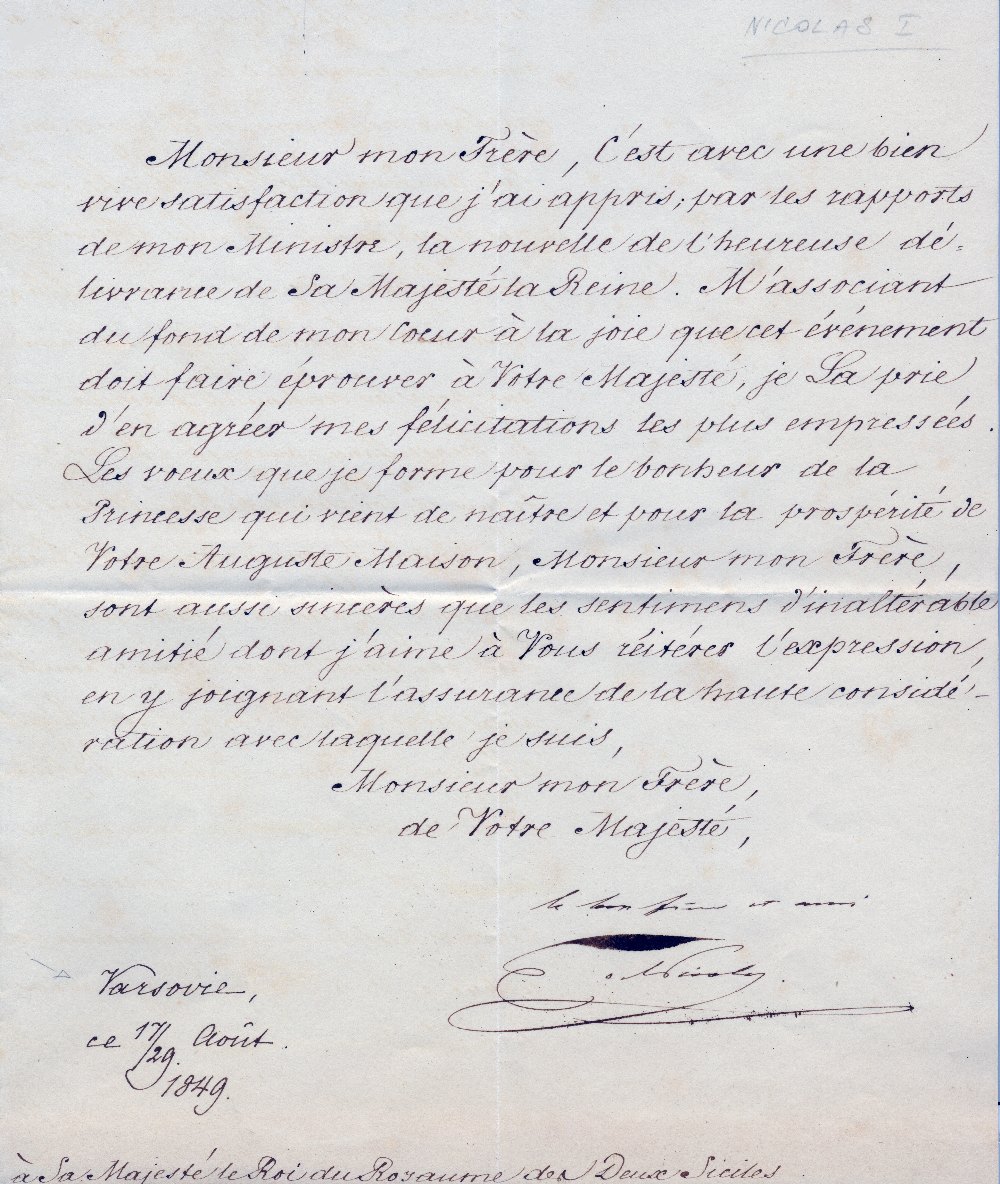 NICOLAS I
Monsieur mon Frère, C'est avec une bien
vive satisfaction que j'ai appris, par les rapports
de mon Ministre, la nouvelle de l'heureuse dé-
livrance de Sa Majesté la Reine. M'associant
du fond de mon Coeur à la joie que cet événement
doit faire éprouver à Votre Majesté, je La prie
d'en agréer mes félicitations les plus empressées.
Les voeux que je forme pour le bonheur de la
Princesse qui vient de naître et pour la prospérité de
Votre Auguste Maison, Monsieur mon Frère,
sont aussi sincères que les sentimens d'inaltérable
amitié dont j'aime à Vous réitérer l'expression,
en y joignant l'assurance de la haute considé-
ration avec laquelle je suis,
Monsieur mon Frère,
de Votre Majesté,
le bon frère et ami
Nicolas
Varsovie,
ce 17/29. Août.
1849.
à Sa Majesté le Roi du Royaume des Deux Siciles